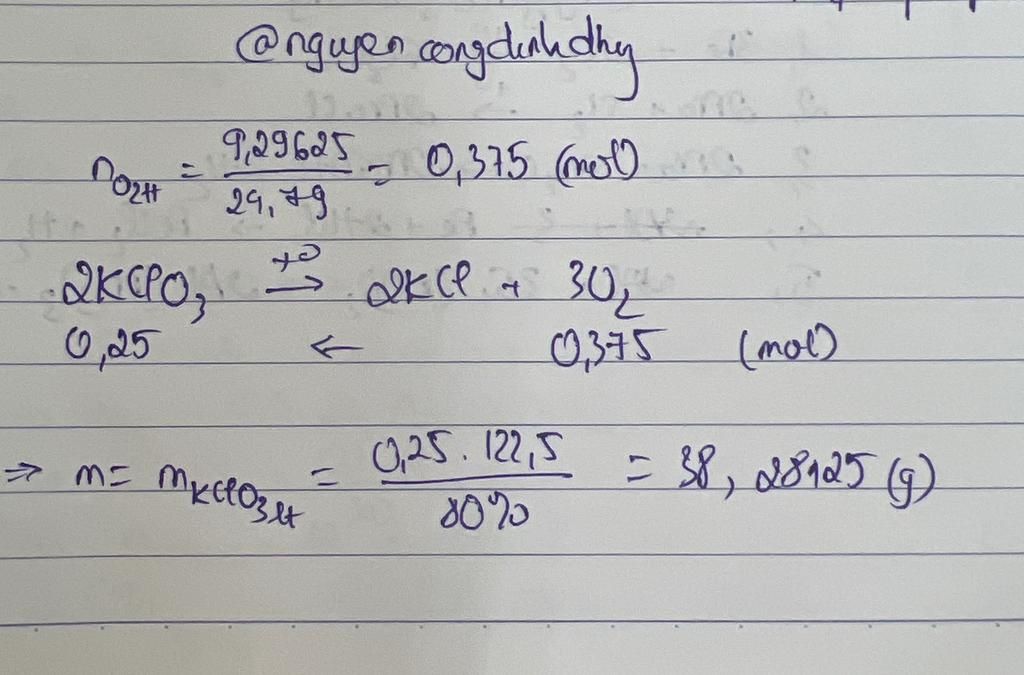 @nguyen congdinhdhy
nO2tt = 9,29625 / 24,79 = 0,375 (mol)
2KClO3 —t°→ 2KCl + 3O2
0,25 ← 0,375 (mol)
⇒ m = mKClO3lt = 0,25 . 122,5 / 80% = 38,28125 (g)